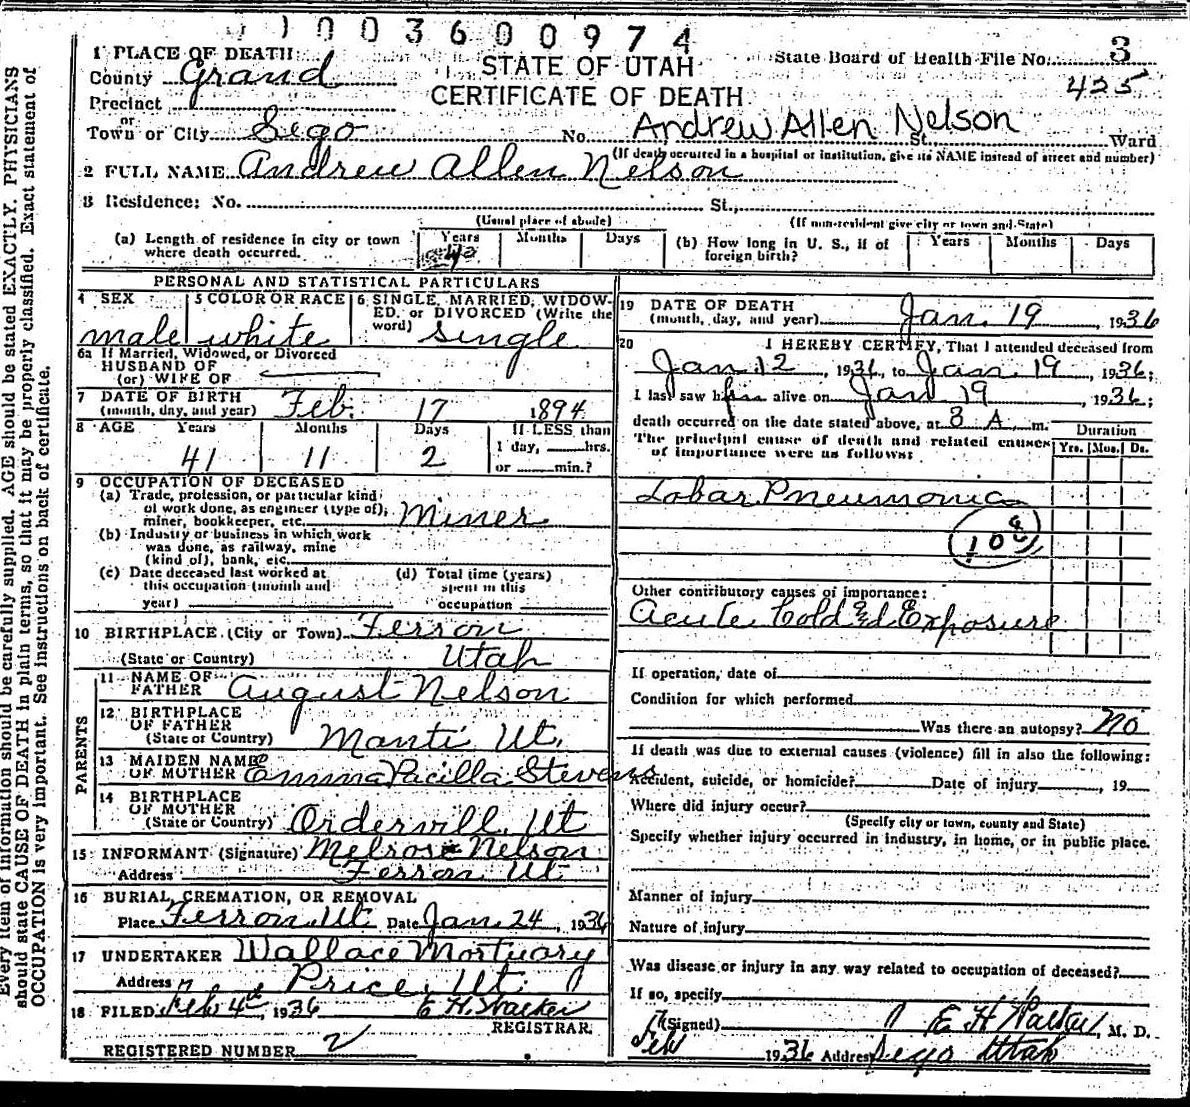 1003600974
1 PLACE OF DEATH: STATE OF UTAH State Board of Health File No. 3
County Grand CERTIFICATE OF DEATH 425
Precinct
or
Town or City Sego No. Andrew Allen Nelson St., Ward
(If death occurred in a hospital or institution, give its NAME instead of street and number)
2 FULL NAME Andrew Allen Nelson
3 Residence: No. St.,
(Usual place of abode) (If non-resident give city or town and State)
(a) Length of residence in city or town where death occurred. Years Months Days
(b) How long in U. S., if of foreign birth? Years Months Days
PERSONAL AND STATISTICAL PARTICULARS
4 SEX male
5 COLOR OR RACE white
6 SINGLE, MARRIED, WIDOWED, or DIVORCED (Write the word) single
6a If Married, Widowed, or Divorced
HUSBAND OF
(or) WIFE OF
7 DATE OF BIRTH
(month, day, and year) Feb. 17 1894
8 AGE Years Months Days If LESS than
41 11 2 1 day, hrs.
or min.?
9 OCCUPATION OF DECEASED
(a) Trade, profession, or particular kind
of work done, as engineer (type of),
miner, bookkeeper, etc. Miner
(b) Industry or business in which work
was done, as railway, mine
(kind of), bank, etc.
(c) Date deceased last worked at
this occupation (month and
year)
(d) Total time (years)
spent in this
occupation
10 BIRTHPLACE (City or Town) Ferron
(State or Country) Utah
PARENTS
11 NAME OF
FATHER August Nelson
12 BIRTHPLACE
OF FATHER
(State or Country) Manti Ut.
13 MAIDEN NAME
OF MOTHER Emma Pacilla Stevens
14 BIRTHPLACE
OF MOTHER
(State or Country) Ordervill, Ut
15 INFORMANT (Signature) Melrose Nelson
Address Ferron Ut.
16 BURIAL, CREMATION, OR REMOVAL
Place Ferron, Ut. Date Jan. 24, 1936
17 UNDERTAKER Wallace Mortuary
Address Price, Ut.
18 FILED Feb 4th, 1936 E H. Walker
REGISTRAR.
REGISTERED NUMBER 2
19 DATE OF DEATH
(month, day, and year) Jan. 19, 1936
20 I HEREBY CERTIFY, That I attended deceased from
Jan. 12, 1936, to Jan. 19, 1936;
I last saw him alive on Jan 19, 1936;
death occurred on the date stated above, at 8 A. m.
The principal cause of death and related causes
of importance were as follows:
Duration
Yrs. Mos. Ds.
Lobar Pneumonia
108
Other contributory causes of importance:
Acute Cold Exposure
If operation, date of
Condition for which performed
Was there an autopsy? No
If death was due to external causes (violence) fill in also the following:
Accident, suicide, or homicide? Date of injury, 19
Where did injury occur?
(Specify city or town, county and State)
Specify whether injury occurred in industry, in home, or in public place.
Manner of injury
Nature of injury
Was disease or injury in any way related to occupation of deceased?
If so, specify
(Signed) E H Walker, M. D.
Feb 1936 Address Sego Utah
Every item of information should be carefully supplied. AGE should be stated EXACTLY. PHYSICIANS
should state CAUSE OF DEATH in plain terms, so that it may be properly classified. Exact statement of
OCCUPATION is very important. See instructions on back of certificate.